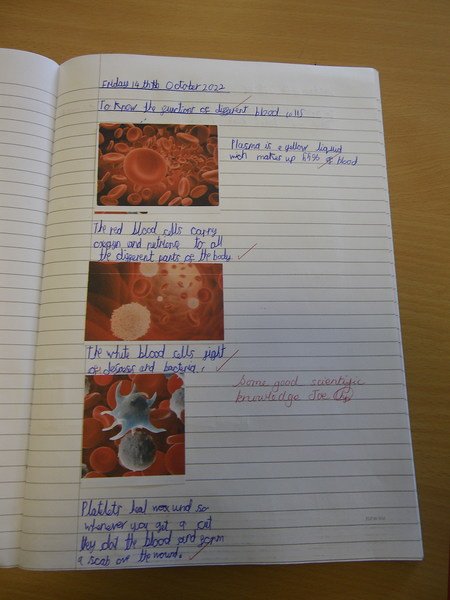 Friday 14 thth October 2022
To know the functions of different blood cells
Plasma is a yellow liquid
wich makes up 55% of blood
The red blood cells carry
oxygen and nutriens to all
the different parts of the body
The white blood cells fight
of deseas and bacteria.
Some good scientific
knowledge Joe
Platelets heal wound so
whenever you get a cut
they clot the blood and form
a scab over the wound.